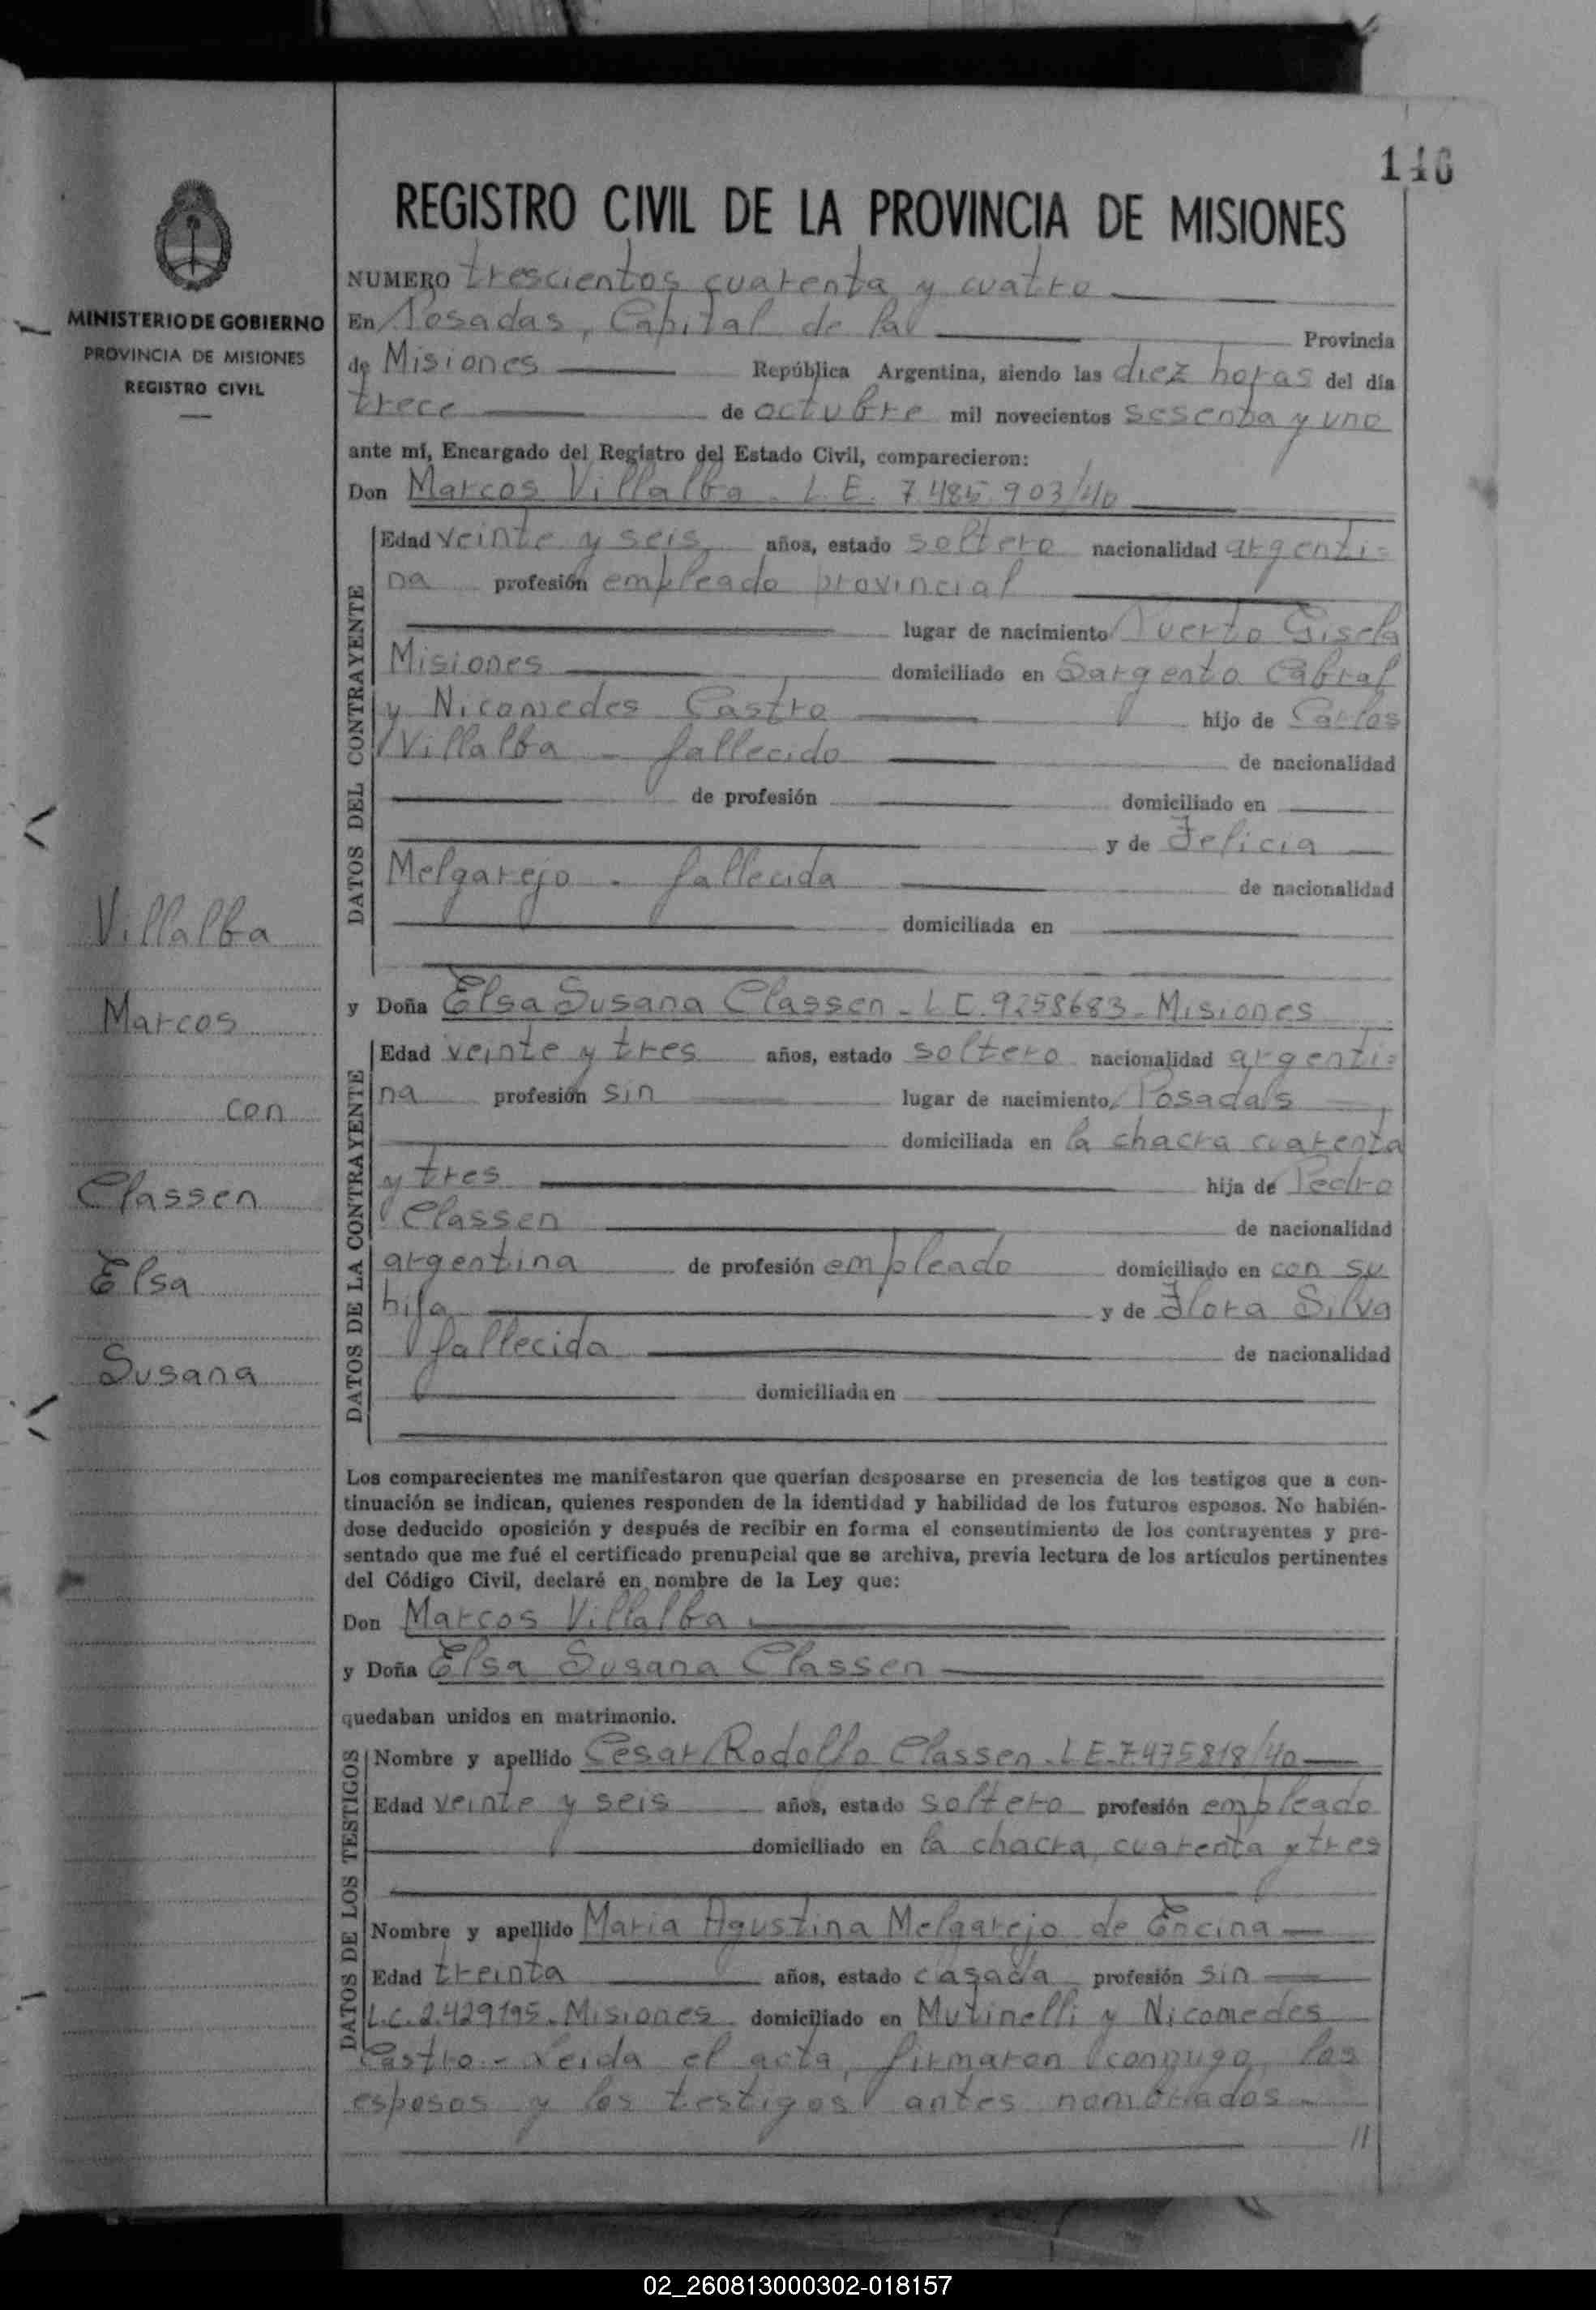 146
REGISTRO CIVIL DE LA PROVINCIA DE MISIONES
MINISTERIO DE GOBIERNO
PROVINCIA DE MISIONES
REGISTRO CIVIL
Villalba
Marcos
con
Classen
Elsa
Susana
NUMERO trescientos cuarenta y cuatro
En Posadas, Capital de la Provincia
de Misiones República Argentina, siendo las diez horas del día
trece de octubre mil novecientos sesenta y uno
ante mí, Encargado del Registro del Estado Civil, comparecieron:
Don Marcos Villalba - L.E. 7.485.903/40
DATOS DEL CONTRAYENTE
Edad veinte y seis años, estado soltero nacionalidad argenti=
na profesión empleado provincial
lugar de nacimiento Puerto Gisela
Misiones domiciliado en Sargento Cabral
y Nicomedes Castro hijo de Carlos
Villalba - fallecido de nacionalidad
de profesión domiciliado en
y de Felicia
Melgarejo - fallecida de nacionalidad
domiciliada en
y Doña Elsa Susana Classen - L.C. 9258683 - Misiones
DATOS DE LA CONTRAYENTE
Edad veinte y tres años, estado soltero nacionalidad argenti=
na profesión sin lugar de nacimiento Posadas
domiciliada en la chacra cuarenta
y tres hija de Pedro
Classen de nacionalidad
argentina de profesión empleado domiciliado en con su
hija y de Flora Silva
fallecida de nacionalidad
domiciliada en
Los comparecientes me manifestaron que querían desposarse en presencia de los testigos que a con-
tinuación se indican, quienes responden de la identidad y habilidad de los futuros esposos. No habién-
dose deducido oposición y después de recibir en forma el consentimiento de los contrayentes y pre-
sentado que me fué el certificado prenupcial que se archiva, previa lectura de los artículos pertinentes
del Código Civil, declaré en nombre de la Ley que:
Don Marcos Villalba
y Doña Elsa Susana Classen
quedaban unidos en matrimonio.
DATOS DE LOS TESTIGOS
Nombre y apellido Cesar Rodolfo Classen - L E - 7.475818/40
Edad veinte y seis años, estado soltero profesión empleado
domiciliado en la chacra cuarenta y tres
Nombre y apellido Maria Agustina Melgarejo de Encina
Edad treinta años, estado casada profesión sin
L.C. 2.429195 - Misiones domiciliado en Mutinelli y Nicomedes
Castro - Leida el acta, firmaron conmigo los
esposos y los testigos antes nombrados -
//
02_260813000302-018157